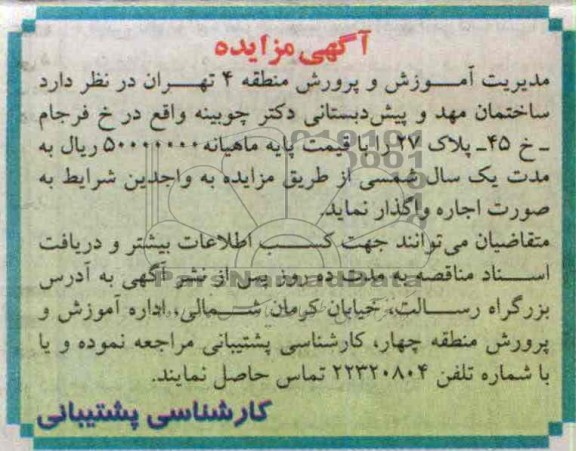 آگهی مزایده
مدیریت آموزش و پرورش منطقه ۴ تهران در نظر دارد
ساختمان مهد و پیش‌دبستانی دکتر چوبینه واقع در خ فرجام
ـ خ ۴۵ـ پلاک ۲۷ را با قیمت پایه ماهیانه ۵۰۰۰۰۰۰۰ ریال به
مدت یک سال شمسی از طریق مزایده به واجدین شرایط به
صورت اجاره واگذار نماید.
متقاضیان می‌توانند جهت کسب اطلاعات بیشتر و دریافت
اسناد مناقصه به مدت ده روز پس از نشر آگهی به آدرس
بزرگراه رسالت، خیابان کرمان شمالی، اداره آموزش و
پرورش منطقه چهار، کارشناسی پشتیبانی مراجعه نموده و یا
با شماره تلفن ۲۲۳۲۰۸۰۴ تماس حاصل نمایند.
کارشناسی پشتیبانی